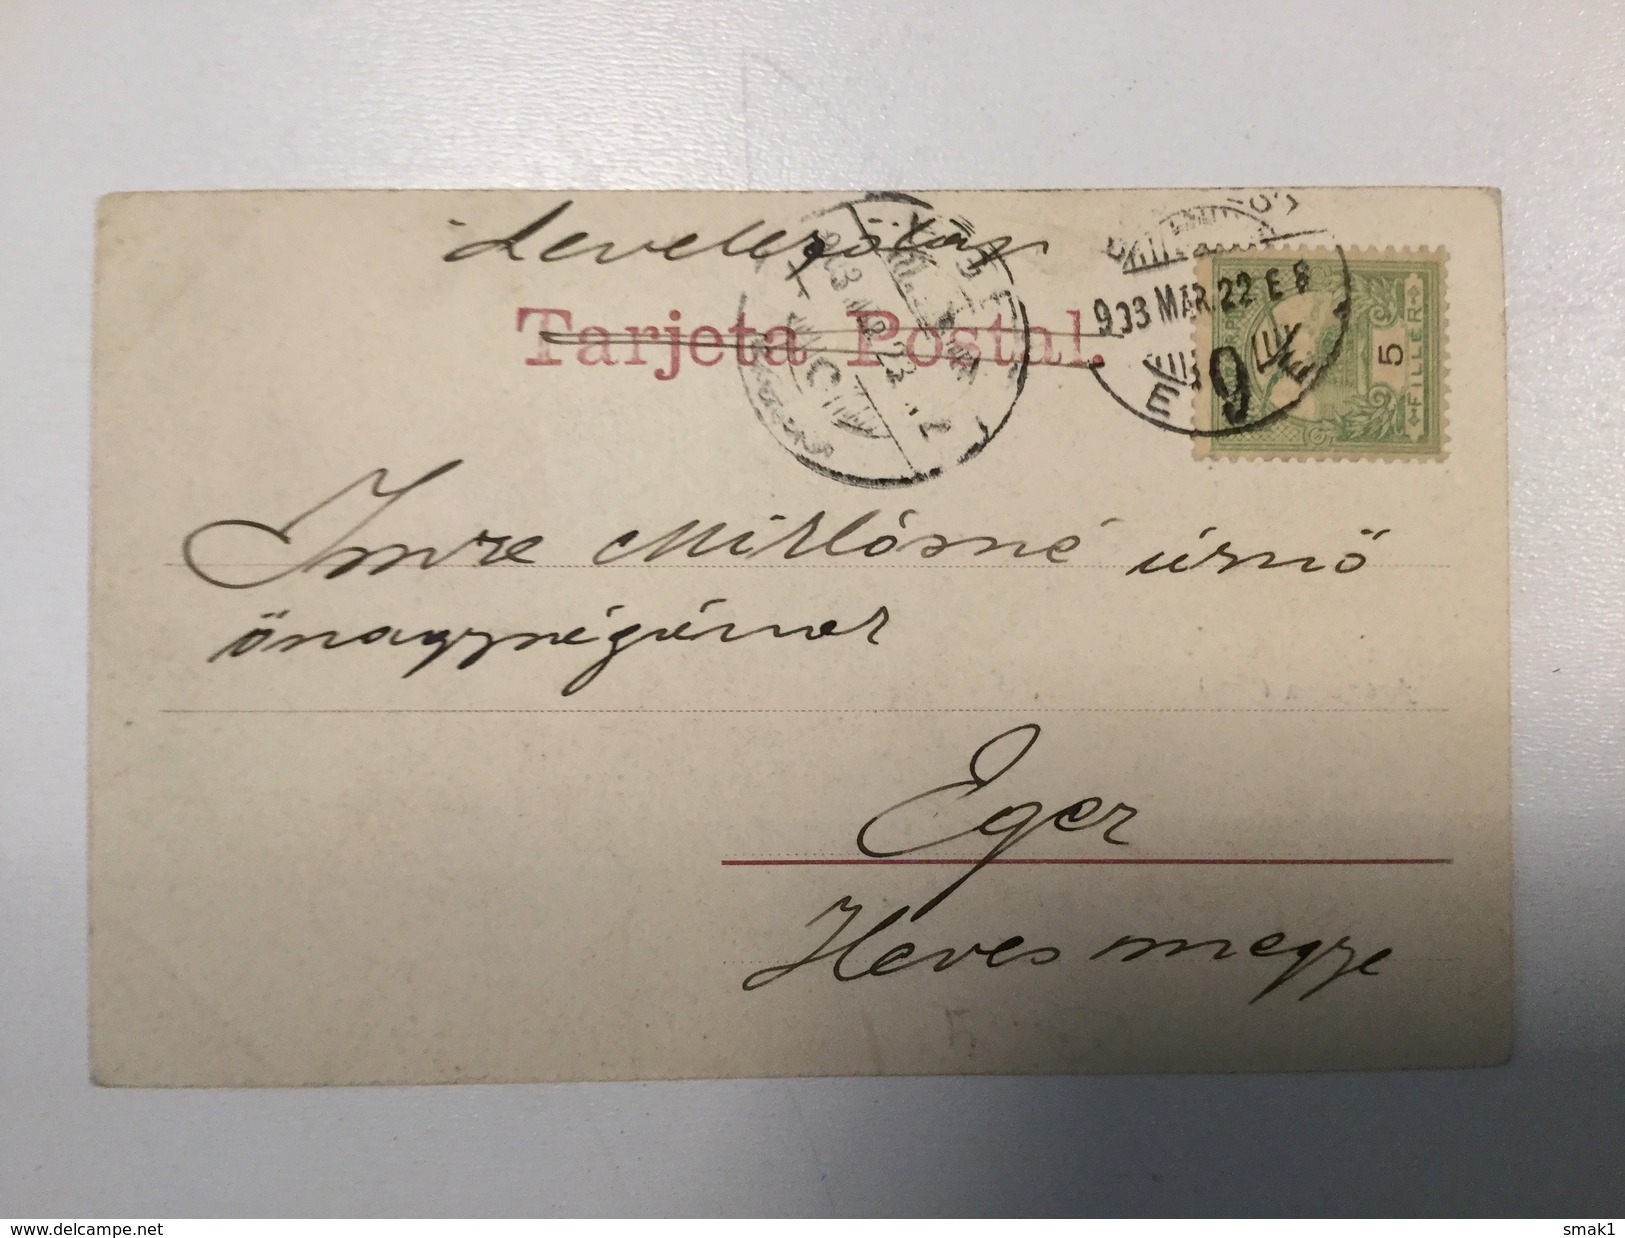 Levelezőlap
Tarjeta Postal.
903 MAR. 22 E 8
9
5
FILLÉR
Imre Miklósné úrnő
önagyságának
Eger
Heves megye
www.delcampe.net
smak1